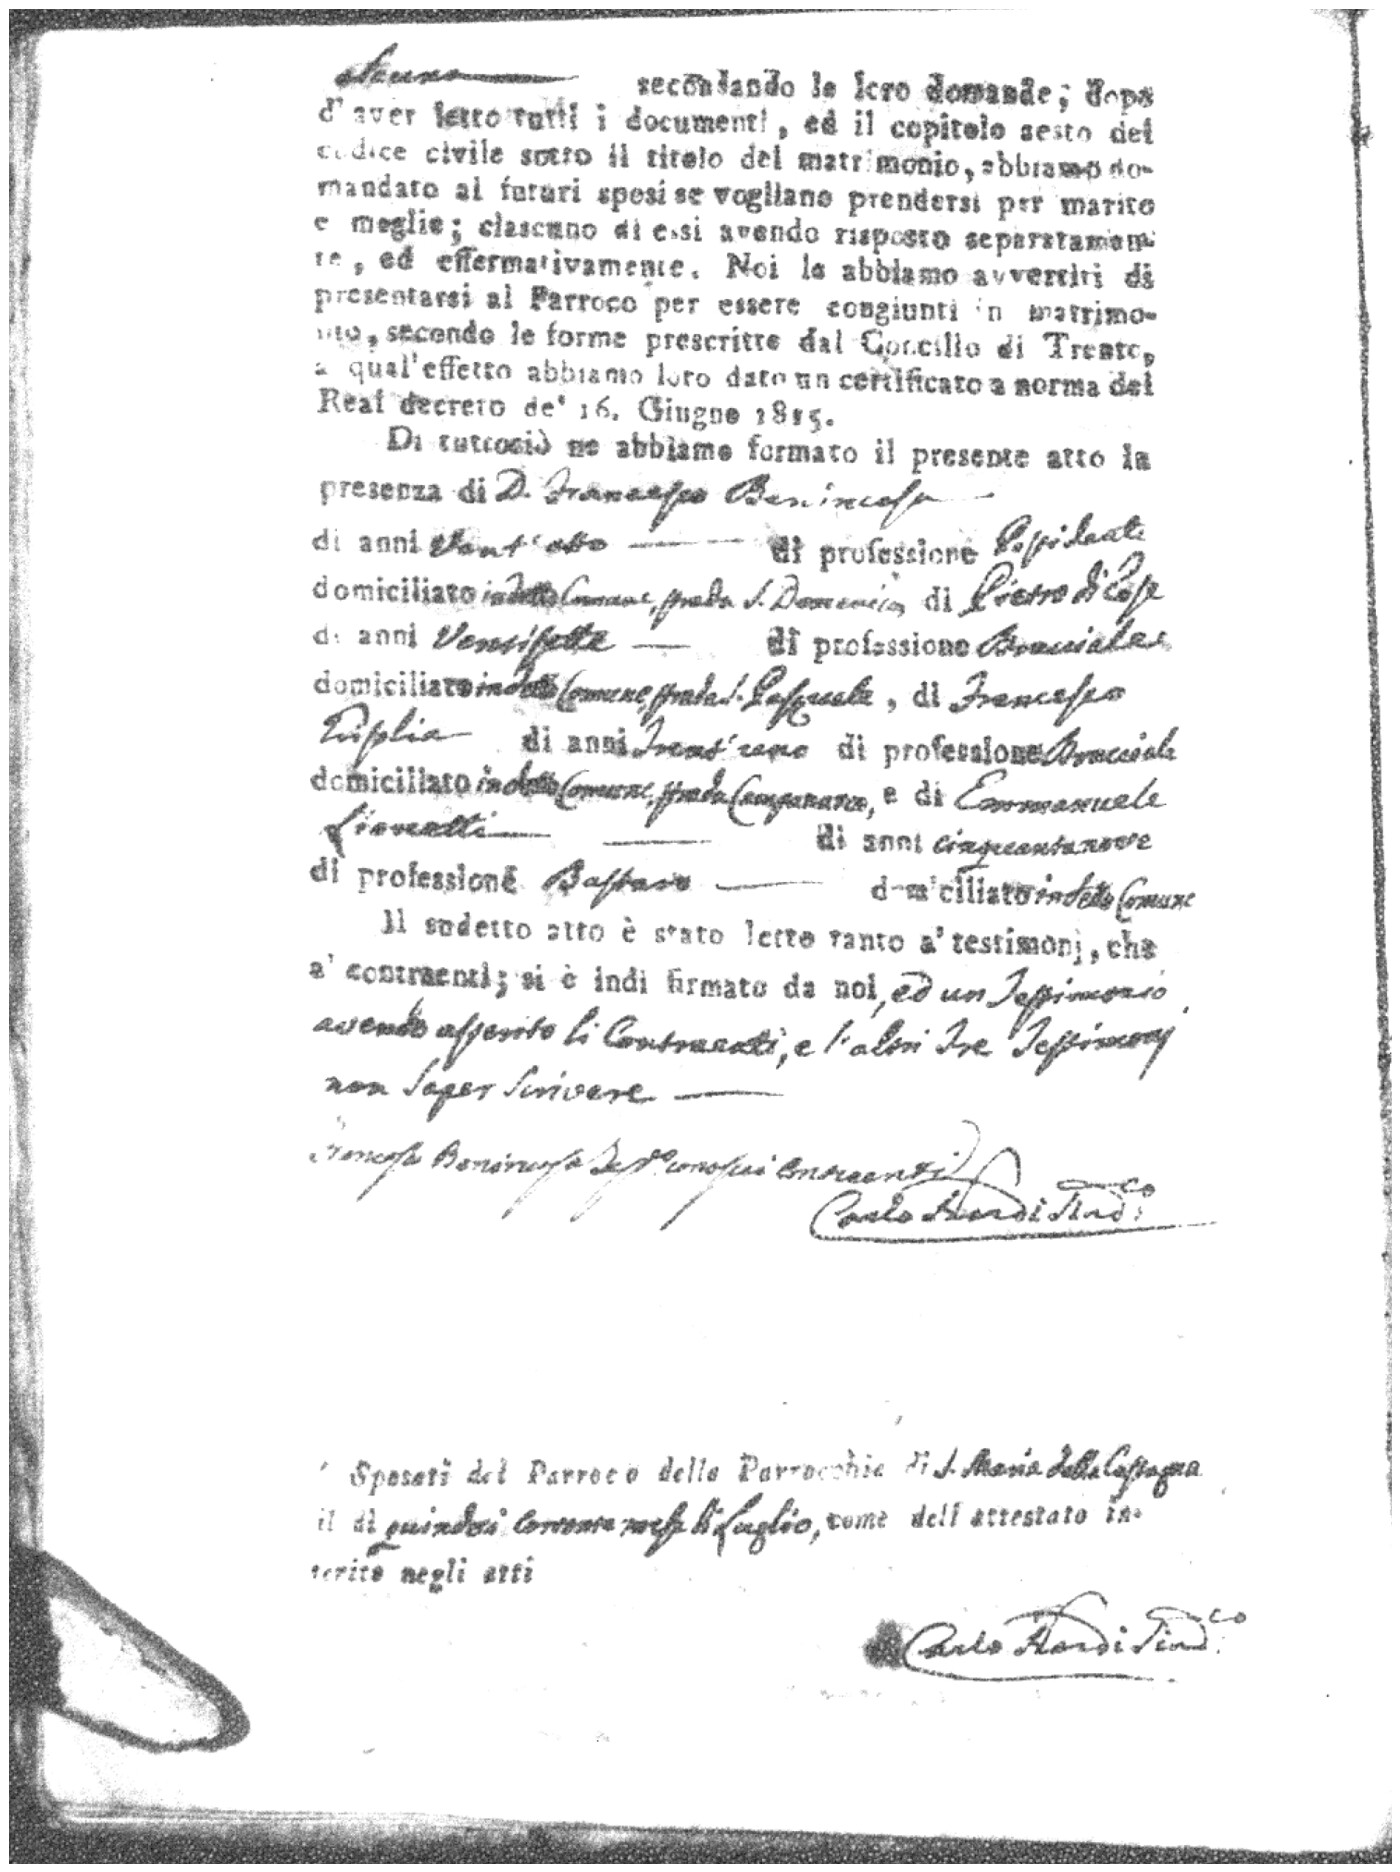 secondando le loro domande; dopo
d'aver letto tutti i documenti, ed il copitolo sesto del
codice civile sotto il titolo del matrimonio, abbiamo do-
mandato ai futuri sposi se vogliano prendersi per marito
e moglie; clascuno di essi avendo risposto separatamen-
te, ed effermativamente. Noi le abbiamo avvertiti di
presentarsi al Parroco per essere congiunti in matrimo-
nio, secondo le forme prescritte dal Concilio di Trento,
a qual'effetto abbiamo loro dato un certificato a norma del
Real decreto de' 16. Giugno 1815.
Di tuttociò ne abbiamo formato il presente atto in
presenza di D. Francesco Benincasa
di anni Vent'otto di professione
domiciliato in detto Comune, strada S. Domenico, di Pietro di
di anni Ventisette di professione Bracciale
domiciliato in detto Comune, strada S. Pasquale, di Francesco
di anni Trent'uno di professione Bracciale
domiciliato in detto Comune, strada Campanaro, e di Emmanuele
di anni cinquantanove
di professione Bastaso domiciliato in detto Comune
Il sudetto atto è stato letto tanto a' testimonj, che
a' contraenti; si è indi firmato da noi, ed un Testimonio
avendo asserito li Contraenti, e l'altri Tre Testimonj
non saper scrivere
Francesco Benincasa contraenti
Carlo Sind.co
Sposati dal Parroco della Parrocchia di S. Maria della Castagna
il di quindeci corrente mese di Luglio, come dell attestato in-
serito negli atti
Carlo Sind.co